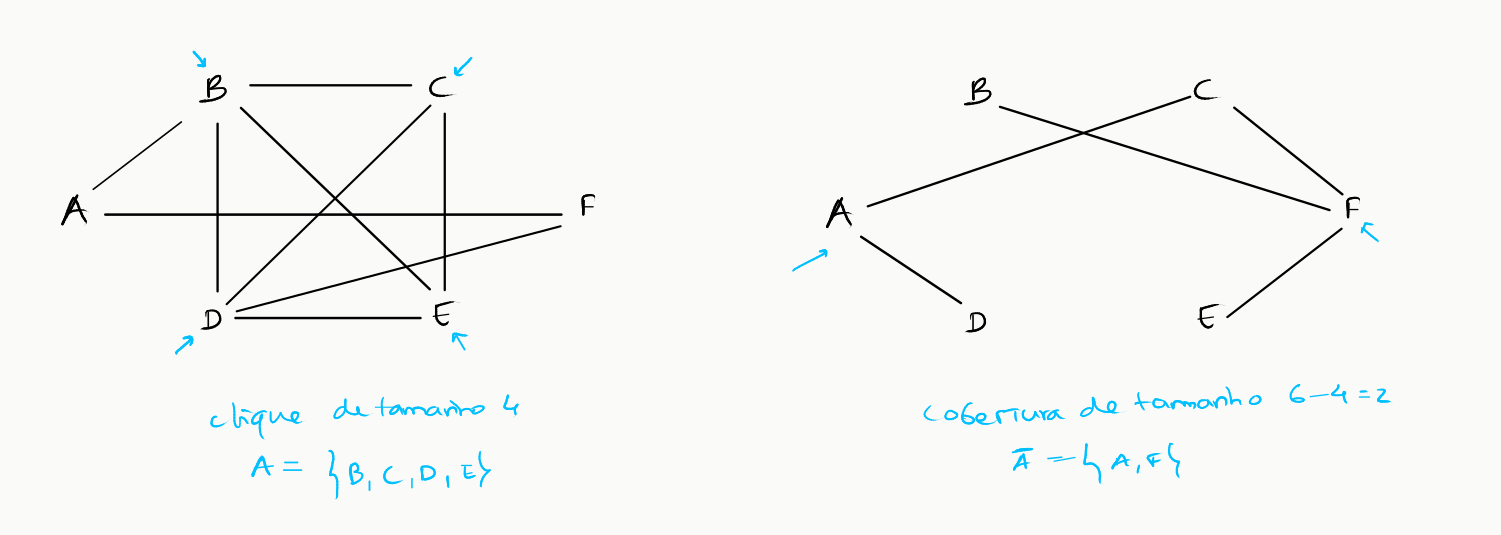 B C
A F
D E
clique de tamanho 4
A = {B, C, D, E}
B C
A F
D E
cobertura de tamanho 6-4=2
Ā = {A, F}